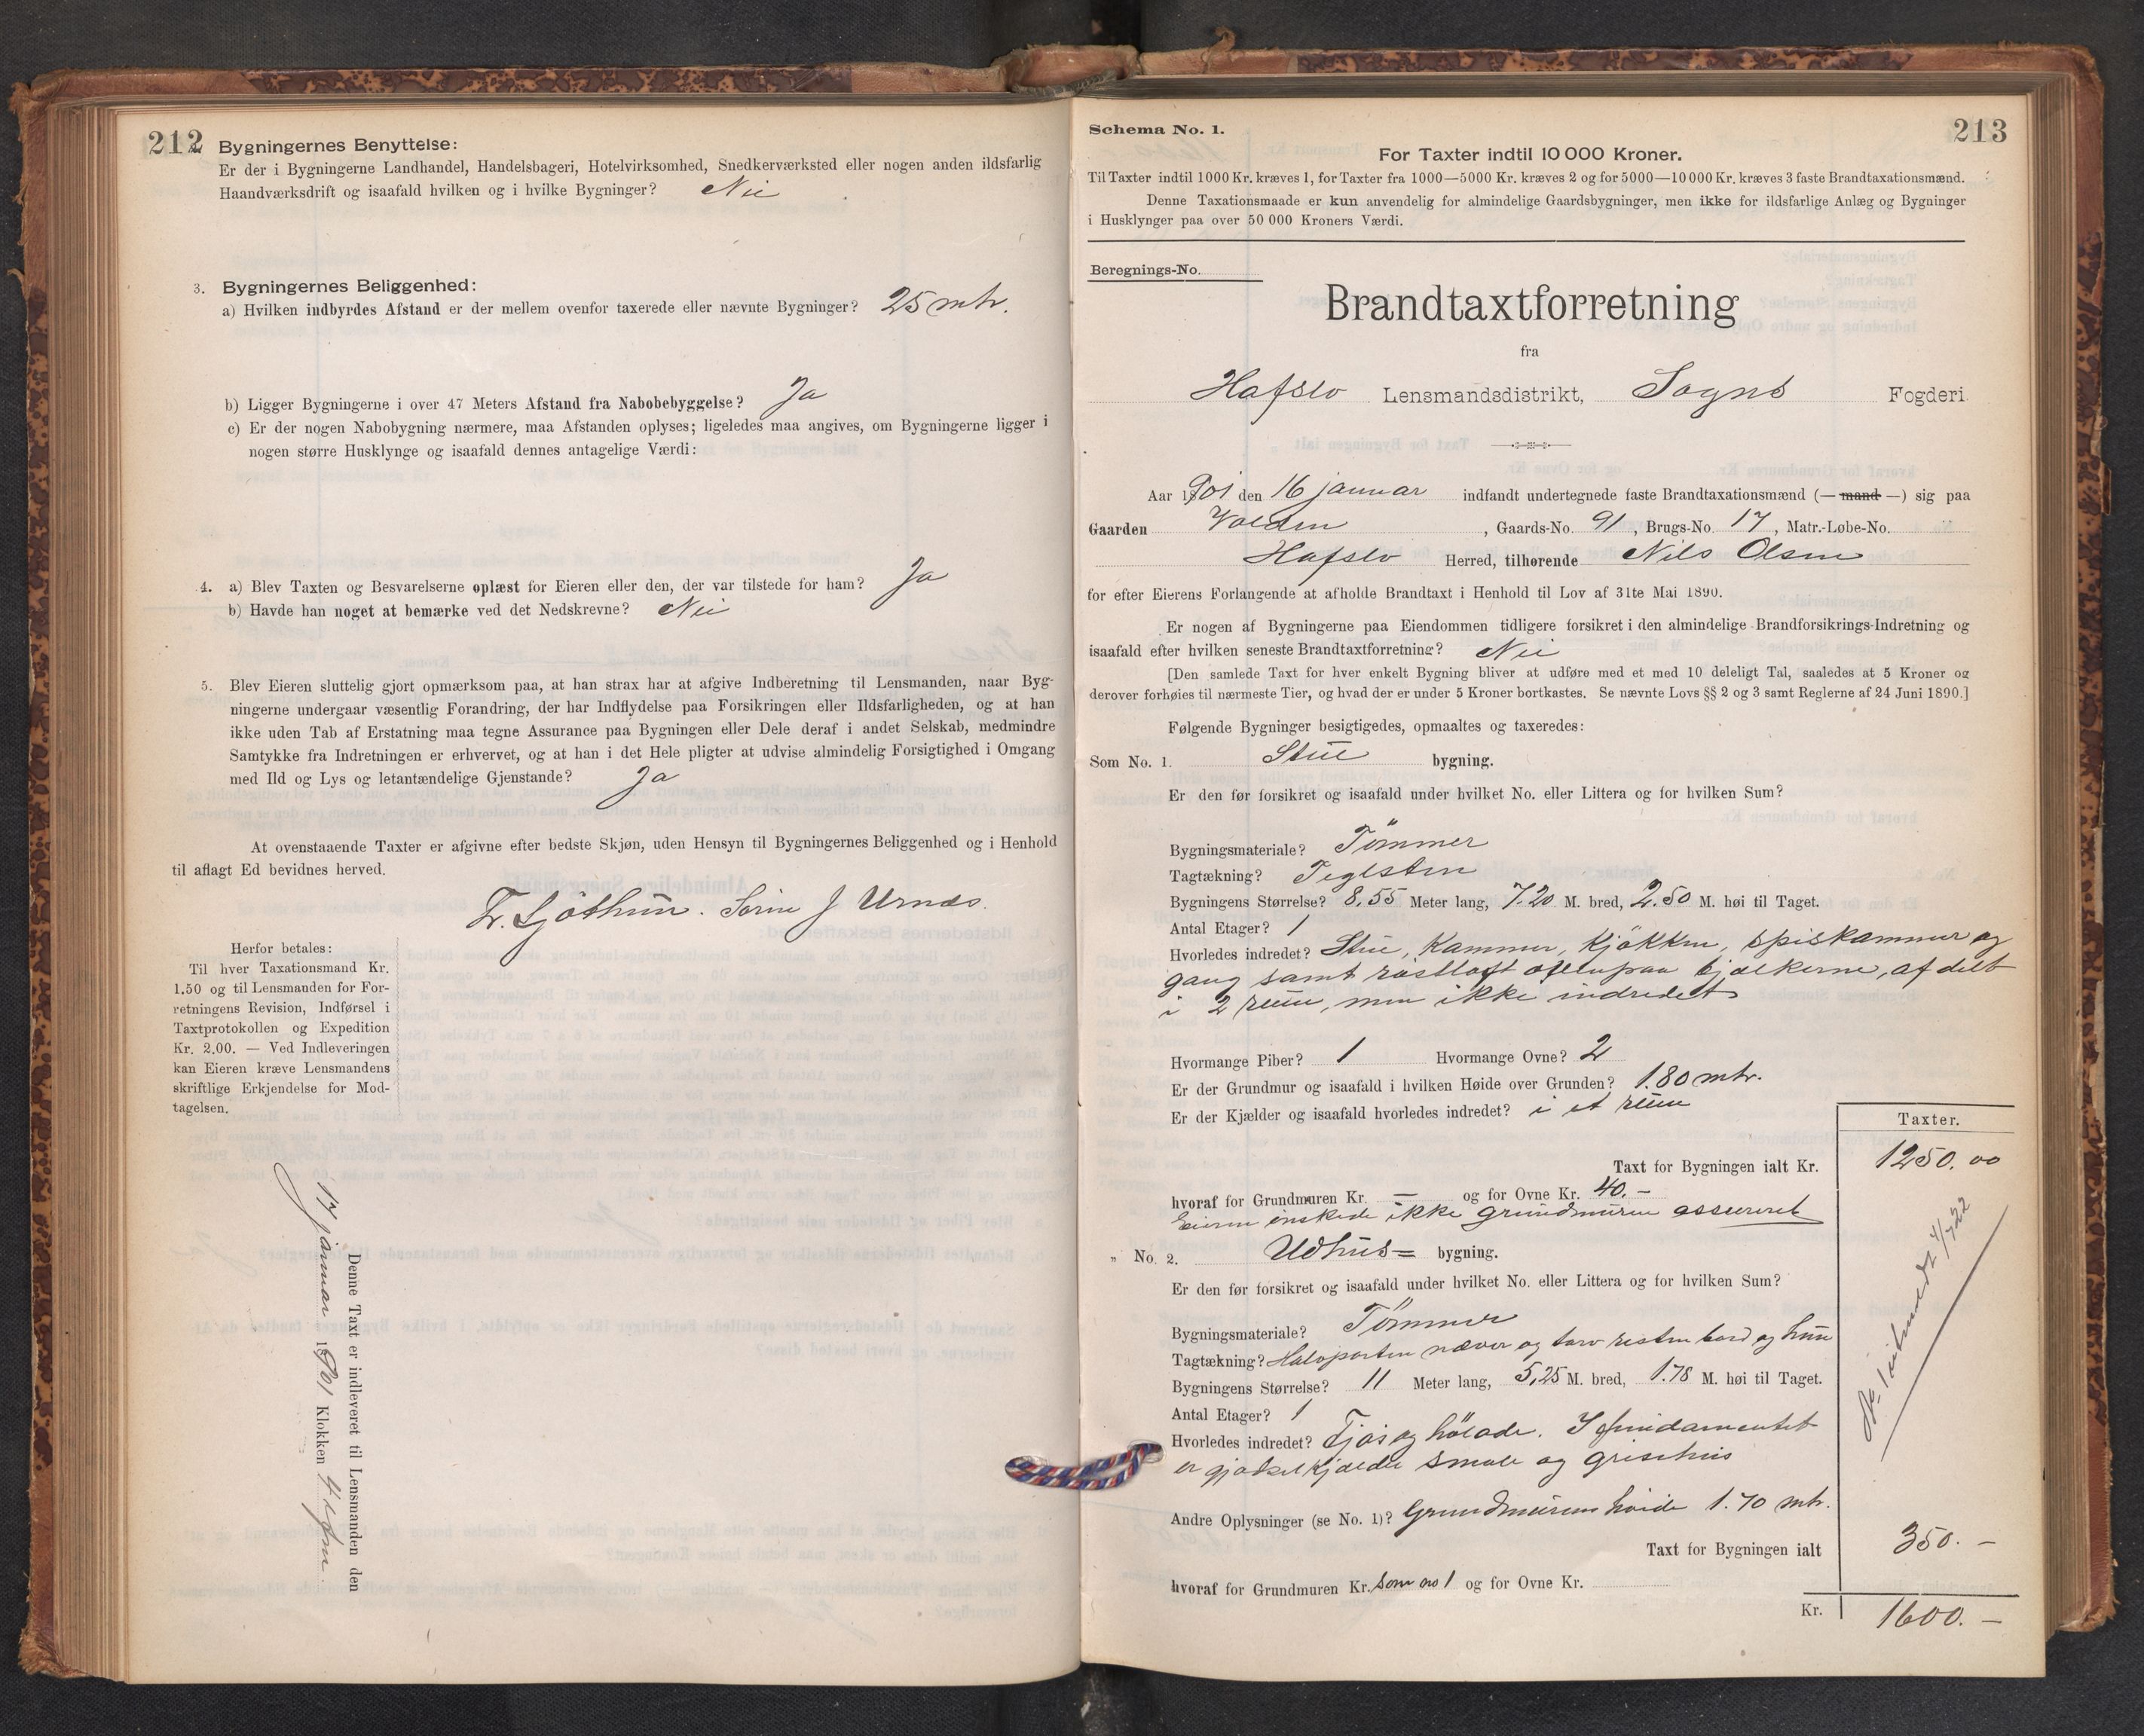 212
Bygningernes Benyttelse:
Er der i Bygningerne Landhandel, Handelsbageri, Hotelvirksomhed, Snedkerværksted eller nogen anden ildsfarlig
Haandværksdrift og isaafald hvilken og i hvilke Bygninger? Nei
3. Bygningernes Beliggenhed:
a) Hvilken indbyrdes Afstand er der mellem ovenfor taxerede eller nævnte Bygninger? 25 mtr.
b) Ligger Bygningerne i over 47 Meters Afstand fra Nabobebyggelse? Ja
c) Er der nogen Nabobygning nærmere, maa Afstanden oplyses; ligeledes maa angives, om Bygningerne ligger i
nogen større Husklynge og isaafald dennes antagelige Værdi:
4. a) Blev Taxten og Besvarelserne oplæst for Eieren eller den, der var tilstede for ham? Ja
b) Havde han noget at bemærke ved det Nedskrevne? Nei
5. Blev Eieren sluttelig gjort opmærksom paa, at han strax har at afgive Indberetning til Lensmanden, naar Byg-
ningerne undergaar væsentlig Forandring, der har Indflydelse paa Forsikringen eller Ildsfarligheden, og at han
ikke uden Tab af Erstatning maa tegne Assurance paa Bygningen eller Dele deraf i andet Selskab, medmindre
Samtykke fra Indretningen er erhvervet, og at han i det Hele pligter at udvise almindelig Forsigtighed i Omgang
med Ild og Lys og letantændelige Gjenstande? Ja
At ovenstaaende Taxter er afgivne efter bedste Skjøn, uden Hensyn til Bygningernes Beliggenhed og i Henhold
til aflagt Ed bevidnes herved.
Sjøthun. J Urnæs.
Herfor betales:
Til hver Taxationsmand Kr.
1.50 og til Lensmanden for For-
retningens Revision, Indførsel i
Taxtprotokollen og Expedition
Kr. 2.00. — Ved Indleveringen
kan Eieren kræve Lensmandens
skriftlige Erkjendelse for Mod-
tagelsen.
Denne Taxt er indleveret til Lensmanden den
17 januar 1901 Klokken 4 efm.
213
Schema No. 1.
For Taxter indtil 10 000 Kroner.
Til Taxter indtil 1000 Kr. kræves 1, for Taxter fra 1000—5000 Kr. kræves 2 og for 5000—10 000 Kr. kræves 3 faste Brandtaxationsmænd.
Denne Taxationsmaade er kun anvendelig for almindelige Gaardsbygninger, men ikke for ildsfarlige Anlæg og Bygninger
i Husklynger paa over 50 000 Kroners Værdi.
Beregnings-No.
Brandtaxtforretning
fra
Hafslo Lensmandsdistrikt, Sogns Fogderi
Aar 1901 den 16 januar indfandt undertegnede faste Brandtaxationsmænd (— mand —) sig paa
Gaarden Volden, Gaards-No. 91, Brugs-No. 17, Matr.-Løbe-No.
Hafslo Herred, tilhørende Nils Olsen
for efter Eierens Forlangende at afholde Brandtaxt i Henhold til Lov af 31te Mai 1890.
Er nogen af Bygningerne paa Eiendommen tidligere forsikret i den almindelige Brandforsikrings-Indretning og
isaafald efter hvilken seneste Brandtaxtforretning? Nei
[Den samlede Taxt for hver enkelt Bygning bliver at udføre med et med 10 deleligt Tal, saaledes at 5 Kroner og
derover forhøies til nærmeste Tier, og hvad der er under 5 Kroner bortkastes. Se nævnte Lovs §§ 2 og 3 samt Reglerne af 24 Juni 1890.]
Følgende Bygninger besigtigedes, opmaaltes og taxeredes:
Som No. 1. Stue bygning.
Er den før forsikret og isaafald under hvilket No. eller Littera og for hvilken Sum?
Bygningsmateriale? Tømmer
Tagtækning? Teglsten
Bygningens Størrelse? 8,55 Meter lang, 7.20 M. bred, 2.50 M. høi til Taget.
Antal Etager? 1
Hvorledes indredet? Stue, Kammer, Kjøkken, Spiskammer og
gang samt røstloft bjælkerne, af delt
i 2 rum, men ikke indredet
Hvormange Piber? 1 Hvormange Ovne? 2
Er der Grundmur og isaafald i hvilken Høide over Grunden? 1.80 mtr.
Er der Kjælder og isaafald hvorledes indredet? i et rum
Taxter.
Taxt for Bygningen ialt Kr. 1250.00
hvoraf for Grundmuren Kr. — og for Ovne Kr. 40.–
Eieren ønskede ikke grundmuren assureret
„ No. 2. Udhus= bygning.
Er den før forsikret og isaafald under hvilket No. eller Littera og for hvilken Sum?
Bygningsmateriale? Tømmer
Tagtækning? Halvparten næver og torv resten bord og
Bygningens Størrelse? 11 Meter lang, 5,25 M. bred, 1.78 M. høi til Taget.
Antal Etager? 1
Hvorledes indredet? Fjøs og hølade. I fundamentet
er gjødselkjælder smale og grisehus
Andre Oplysninger (se No. 1)? Grundmurens høide 1.70 mtr.
Taxt for Bygningen ialt 350.–
hvoraf for Grundmuren Kr. som no 1 og for Ovne Kr.
Kr. 1600.–